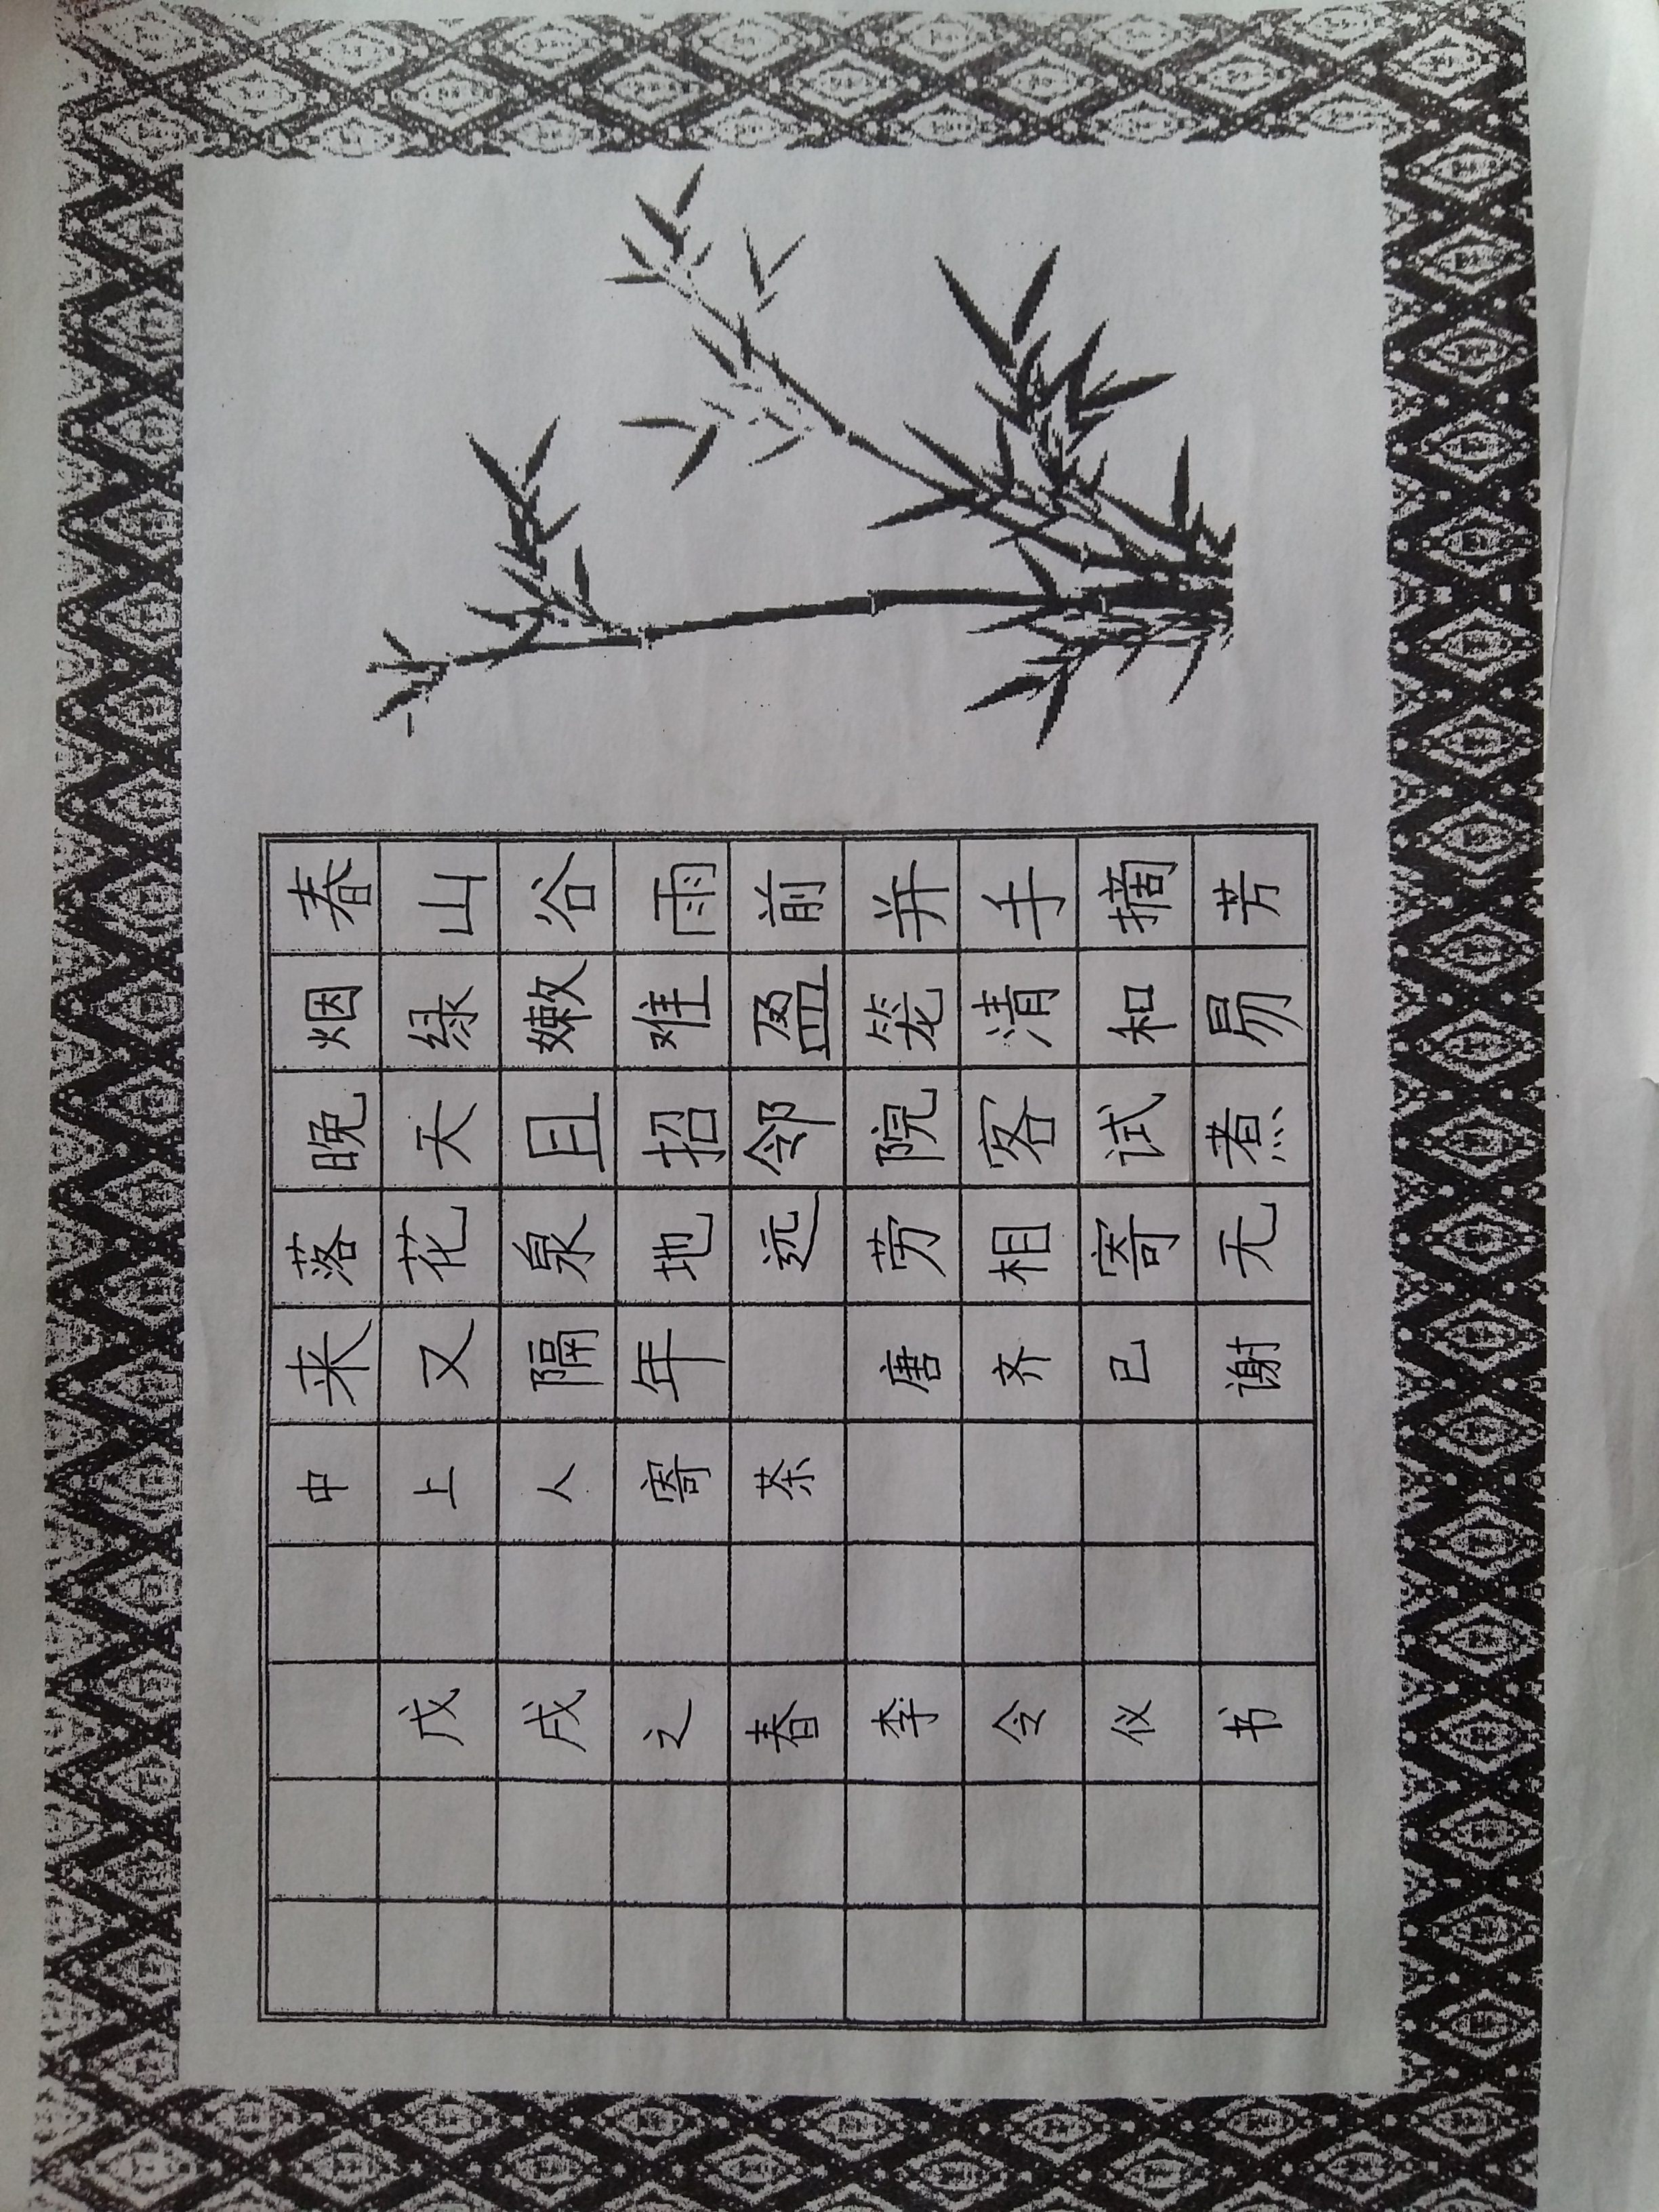 春山谷雨前并手摘芳
烟绿嫩难盈笼清和易
晚天且招邻院客试煮
落花泉地远劳相寄无
来又隔年 唐齐已谢
中上人寄茶
戊戌之春李令仪书